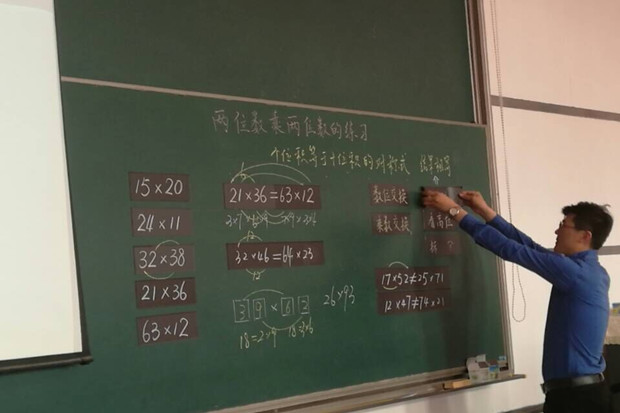 两位数乘两位数的练习
个位积等于十位积的对称式
15×20
24×11
32×38
21×36
63×12
21×36=63×12
32×46=64×23
3 9 × 6 2
18=2×9
26×93
数位交换
乘数交换
看高位
17×52≠25×71
12×47≠74×21